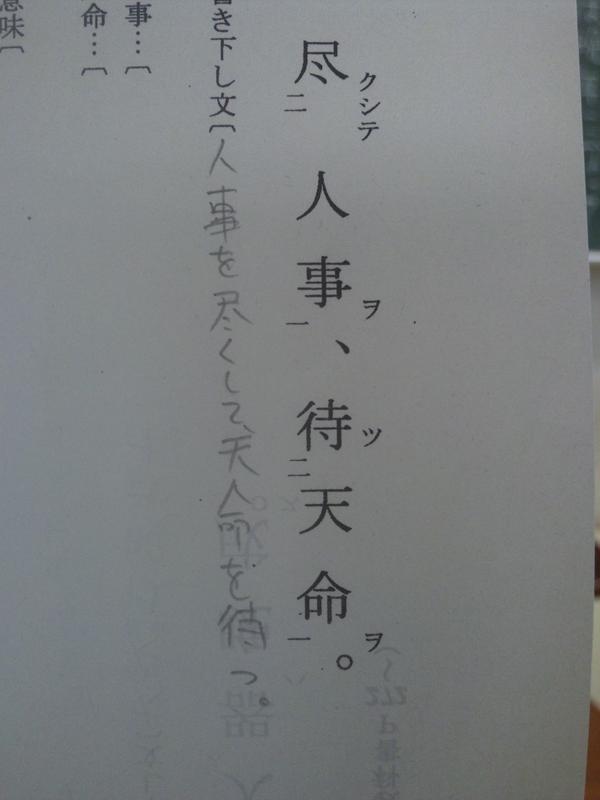 尽クシテ二人事ヲ一、待ツ二天命ヲ一。
書き下し文〔人事を尽くして、天命を待つ。
事…〔
命…〔
意味〔